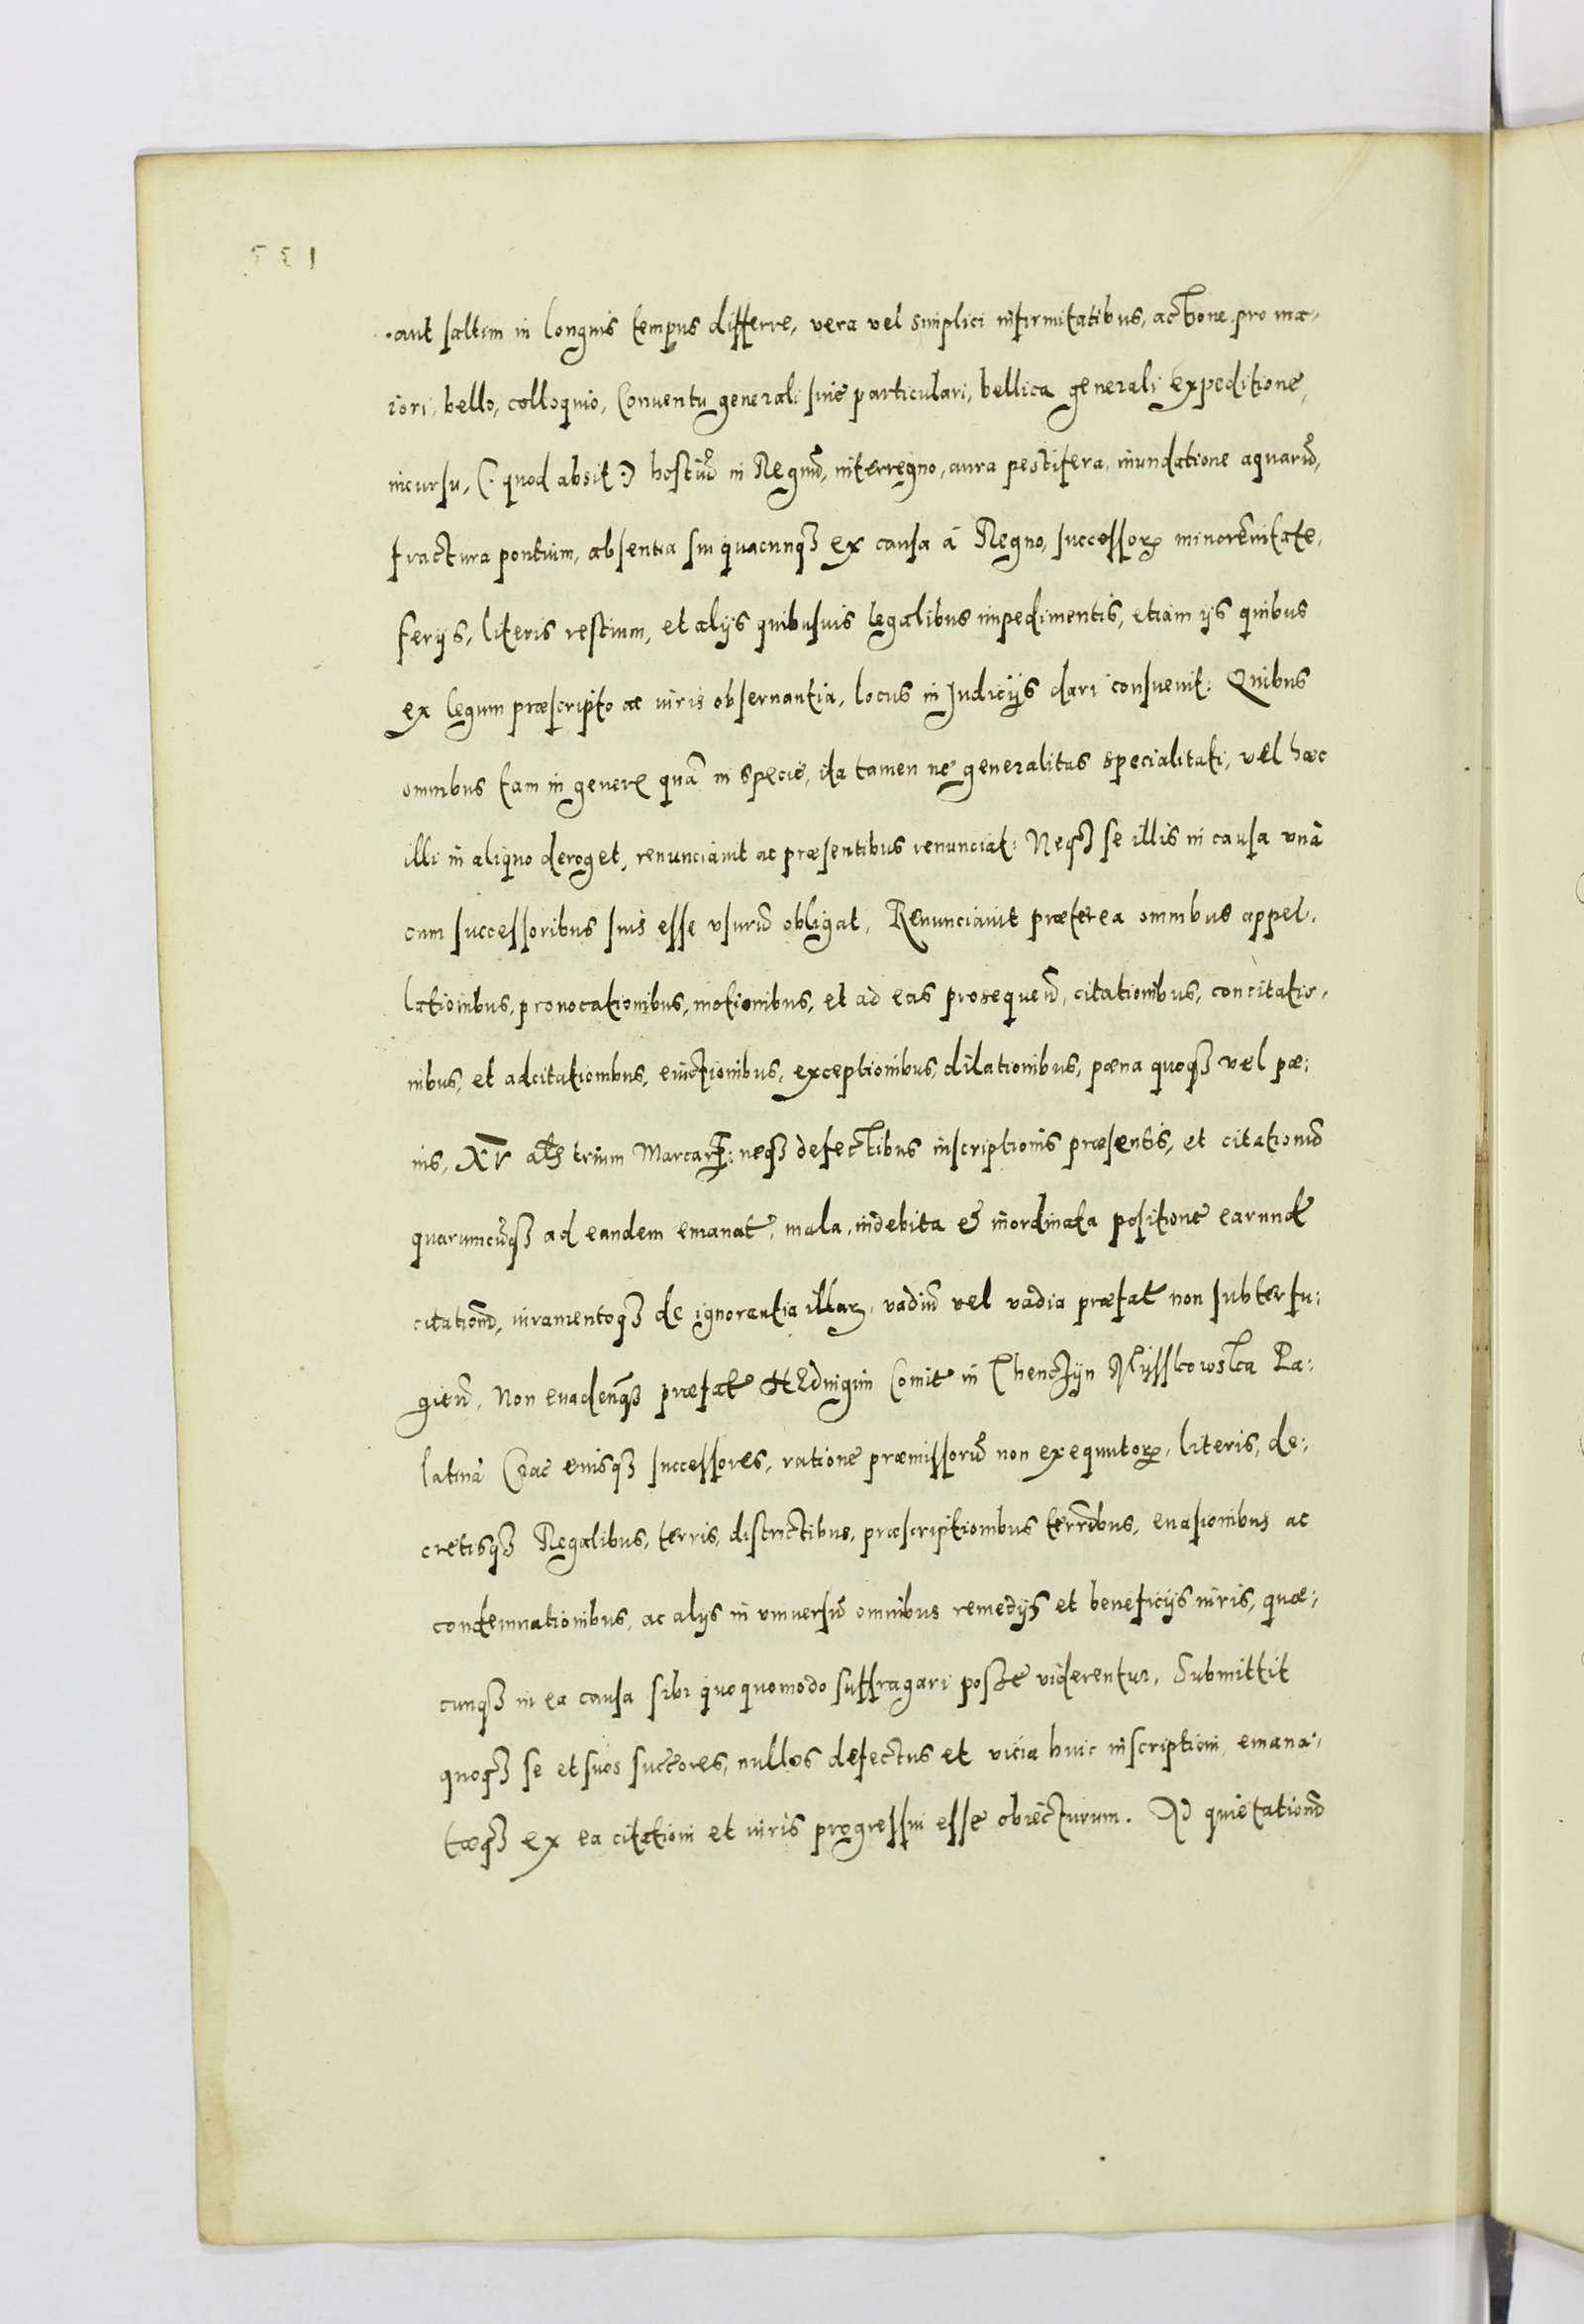 aut saltim in longius tempus differre, vera vel simplici infirmitatibus, actione pro ma-
iori, bello, colloquio, Conventu generali sive particulari, bellica generali expeditione,
incursu, (: quod absit :) hostiū in Regnū, interregno, aura pestifera, inundatione aquarū,
fractura pontium, absentia sui quacunqȝ ex causa á Regno, successorꝝ minorēnitate,
ferijs, literis restium, et alijs quibusuis legalibus impedimentis, etiam ijs quibus
ex legum præscripto ac iuris obseruantia, locus in Iudicijs dari consuevit: Quibus
omnibus tam in genere quā in specie, ita tamen ne generalitas specialitati, vel hæc
illi in aliquo deroget, renunciavit ac præsentibus renunciat: Neqȝ se illis in causa vna
cum successoribus suis esse vsurū obligat, Renunciavit præterea omnibus appel-
lationibus, prouocationibus, motionibus, et ad eas prosequen̄, citationibus, concitatio-
nibus, et adcitationibus, euictionibus, exceptionibus, dilationibus, pœna quoqȝ vel pæ-
nis, XV trium Marcarꝝ: neqȝ defectibus inscriptionis præsentis, et citationū
quarumcūqȝ ad eandem emanat, mala, indebita & inordinata positione earund
citationū, iuramentoqȝ de ignorantia illarꝝ, vadiū vel vadia præfat non subterfu:
gitū, Non evaden̄qȝ præfat Hedvigim Comit in Thenczyn Mysskowska Pa:
latinā Crac eiusqȝ successores, ratione præmissorū non exequutorꝝ, literis, de:
cretisqȝ Regalibus, terris, districtibus, præscriptionibus terrībus, euasionibus ac
condemnationibus, ac alijs in vniuersū omnibus remedijs et beneficijs iuris, quæ-
cunqȝ in ea causa sibi quoquomodo suffragari posse viderentur, Submittit
quoqȝ se et suos succōres, nullos defectus et vicia huic inscriptioni, emana-
tæqȝ ex ea citationi et iuris progressui esse obiecturum. Ad quietationū